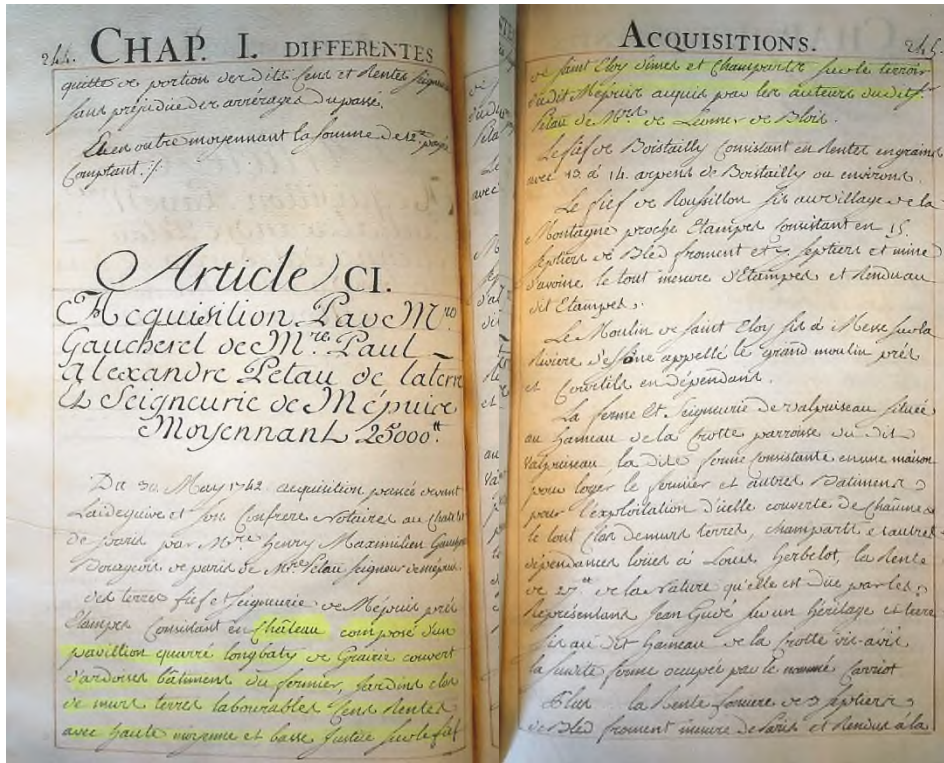 244. CHAP. I. DIFFERENTES
quitte de portion desdits Cens et Rentes
sans préjudice des arrérages du passé.
Et en outre moyennant la somme de payé
Comptant ./.
Article CI.
Acquisition Par Mre
Gaucherel de Mre Paul
Alexandre Petau de la terre
et Seigneurie de Mépuire
Moyennant 25000tt
Du 30. May 1742. acquisition passée devant
Laideguive et son Confrere Notaires au Chatelet
de paris par Mre henry Maximilien
Bourgeois de paris de Mre Petau seigneur
des terres fief et Seigneurie de Mépuis prés
Etampes Consistant en Château composé d'un
pavillion quarré longbaty de Grairie couvert
d'ardoises bâtiment du fermier, Jardins clos
de murs terres labourables Cens Rentes
avec haute moyenne et basse Justice sur le fief
ACQUISITIONS. 245
de saint Eloy dimes et Champarts sur le terroir
dudit Mépuis acquis par les auteurs dudit Sr
Petau de Mrs de de Blois.
Le fief de Boistailly Consistant en Rentes en grains
avec 13. à 14. arpens de Boistailly ou environs.
Le fief de Roussillon sis au village de la
Montagne proche Etampes Consistant en 15.
septiers de Bled froment et septiers et mine
d'avoine le tout mesure d'Etampes et Rendu au
dit Etampes.
Le Moulin de saint Eloy sis à Messe sur la
Riviere appellé le grand moulin prés
et Courtils en dépendans.
La ferme Et Seigneurie de valpuiseau située
au hameau de la Grotte parroisse du dit
valpuiseau, la dite ferme consistante en une maison
pour loger le fermier et autres Batimens
pour l'exploitation d'icelle couverte de Chaume
le tout Clos de murs terres, champarts et autres
dépendances loués à Louis herbelot, la Rente
de 27tt de la Nature qu'elle est Due par les
Représentans Jean Gudé sur un héritage et terre
sis au dit hameau de la Grotte vis-avis
la susdite ferme occupée par le nommé Carriot
Plus la Rente fonciere de septiers
de Bled froment mesure de Paris et Rendus à la